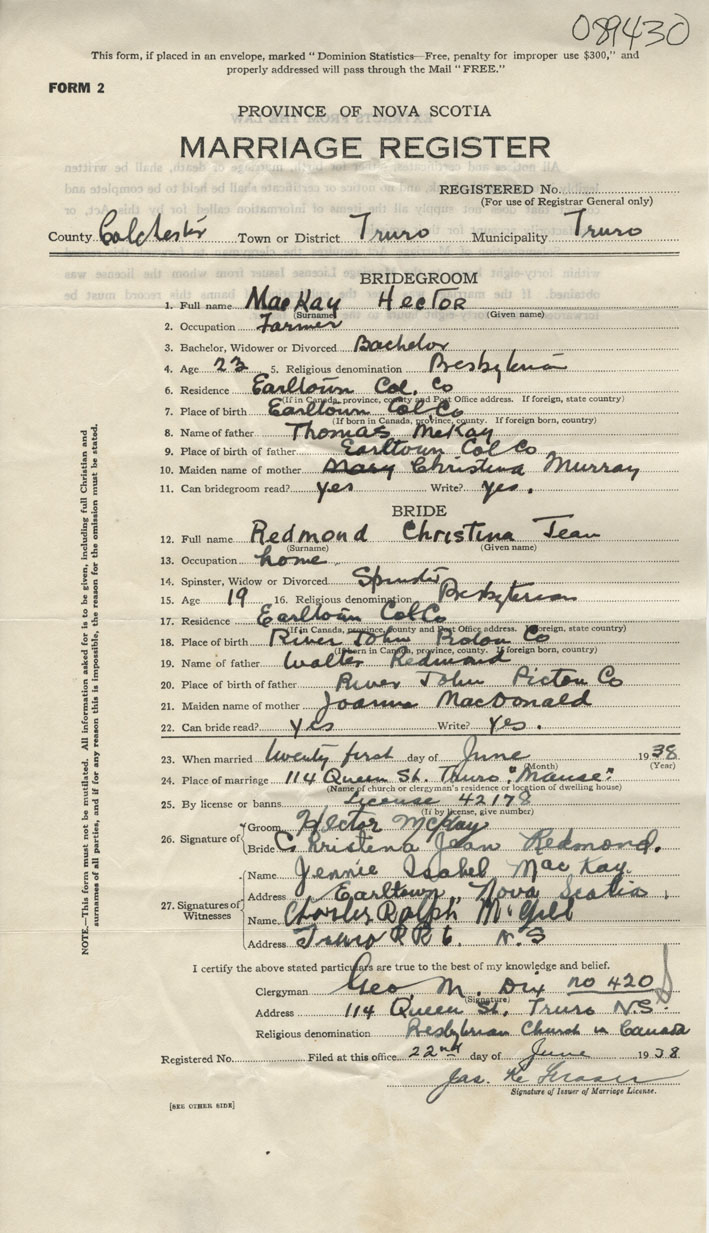 089430
This form, if placed in an envelope, marked "Dominion Statistics—Free, penalty for improper use $300," and
properly addressed will pass through the Mail "FREE."
FORM 2
PROVINCE OF NOVA SCOTIA
MARRIAGE REGISTER
REGISTERED No.
(For use of Registrar General only)
County Colchester Town or District Truro Municipality Truro
BRIDEGROOM
1. Full name MacKay Hector
(Surname) (Given name)
2. Occupation Farmer
3. Bachelor, Widower or Divorced Bachelor
4. Age 23 5. Religious denomination
6. Residence Earltown Col. Co
(If in Canada, province, county and Post Office address. If foreign, state country)
7. Place of birth Earltown Col Co
(If born in Canada, province, county. If foreign born, country)
8. Name of father Thomas McKay
9. Place of birth of father Earltown Col Co
10. Maiden name of mother Mary Christina Murray
11. Can bridegroom read? yes Write? yes.
BRIDE
12. Full name Redmond Christina Jean
(Surname) (Given name)
13. Occupation home
14. Spinster, Widow or Divorced Spinster
15. Age 19 16. Religious denomination Presbyterian
17. Residence Earltown Col Co
(If in Canada, province, County and Post Office address. If foreign, state country)
18. Place of birth River John Co
(If born in Canada, province, county. If foreign born, country)
19. Name of father Walter Redmond
20. Place of birth of father River John Pictou Co
21. Maiden name of mother Joanna MacDonald
22. Can bride read? yes Write? yes.
23. When married twenty first day of June 1938
(Month) (Year)
24. Place of marriage 114 Queen St. Truro "Manse"
(Name of church or clergyman's residence or location of dwelling house)
25. By license or banns License 42178
(If by license, give number)
26. Signature of Groom Hector McKay
Bride Christena Jean Redmond.
27. Signatures of Witnesses
Name Jennie Isabel MacKay
Address Earltown, Nova Scotia.
Name Charles Ralph McGill
Address Truro R R 6. N.S
I certify the above stated particulars are true to the best of my knowledge and belief.
Clergyman Geo. M. Dix no 420
(Signature)
Address 114 Queen St. Truro N.S.
Religious denomination Presbyterian Church in Canada
Registered No. Filed at this office 22nd day of June 1938
Jas. Fraser
Signature of Issuer of Marriage License.
[SEE OTHER SIDE]
NOTE.—This form must not be mutilated. All information asked for is to be given, including full Christian and
surnames of all parties, and if for any reason this is impossible, the reason for the omission must be stated.